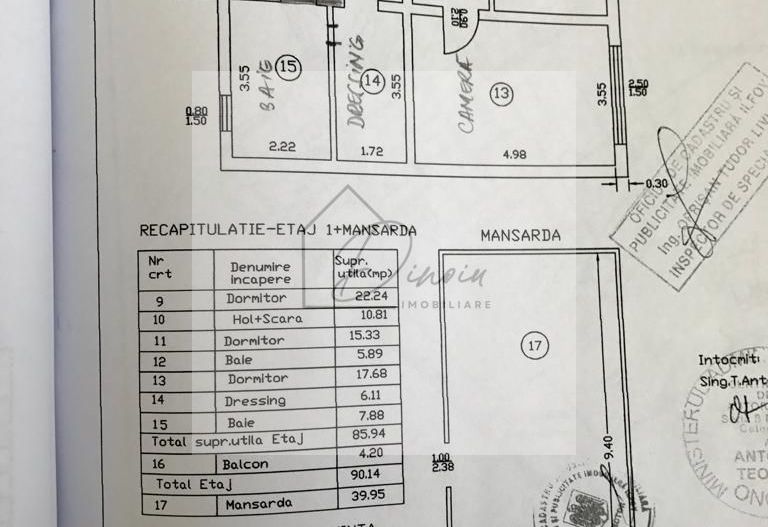 0.90
2.10
3.55
BAIE
15
DRECCING
14
3.55
CAMERA
13
3.55
2.50
1.50
0.80
1.50
2.22
1.72
4.98
0.30
OFICIUL DE CADASTRU ȘI
PUBLICITATE IMOBILIARĂ ILFOV
INSPECTOR DE SPECI
RECAPITULATIE-ETAJ 1+MANSARDA
MANSARDA
Nr crt Denumire incapere Supr. utila(mp)
9 Dormitor 22.24
10 Hol+Scara 10.81
11 Dormitor 15.33
12 Baie 5.89
13 Dormitor 17.68
14 Dressing 6.11
15 Baie 7.88
Total supr.utila Etaj 85.94
16 Balcon 4.20
Total Etaj 90.14
17 Mansarda 39.95
Dinoiu
IMOBILIARE
17
9.40
1.00
2.38
Intocmit:
Sing.T.Anto
MINISTERUL
ANTO
TEO